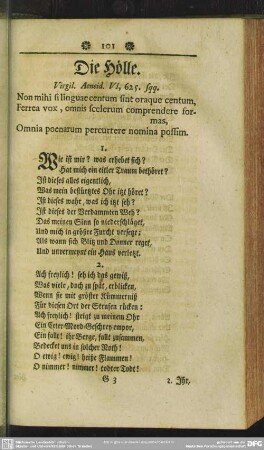 101
Die Hölle.
Virgil. Aeneid. VI, 625. sqq.
Non mihi si linguae centum sint oraque centum,
Ferrea vox, omnis scelerum comprendere for-
mas,
Omnia poenarum percurrere nomina possim.
1.
Wie ist mir? was erhebet sich?
Hat mich ein eitler Traum bethöret?
Ist dieses alles eigentlich,
Was mein bestürztes Ohr itzt höret?
Ist dieses wahr, was ich itzt seh?
Ist dieses der Verdammten Weh?
Das meinen Sinn so niederschläget,
Und mich in größte Furcht versezt;
Als wann sich Blitz und Donner reget,
Und unvermeynt ein Haus verletzt.
2.
Ach freylich! seh ich das gewiß,
Was viele, doch zu spät, erblicken,
Wenn sie mit größter Kümmerniß
Für diesen Ort der Strafen rücken:
Ach freylich! steigt zu meinem Ohr
Ein Ceter-Mord-Geschrey empor,
Ein fallt! ihr Berge, fallt zusammen,
Bedecket uns in solcher Noth!
O ewig! ewig! heiße Flammen!
O nimmer! nimmer! todter Todt!
G 3
2. Ihr,